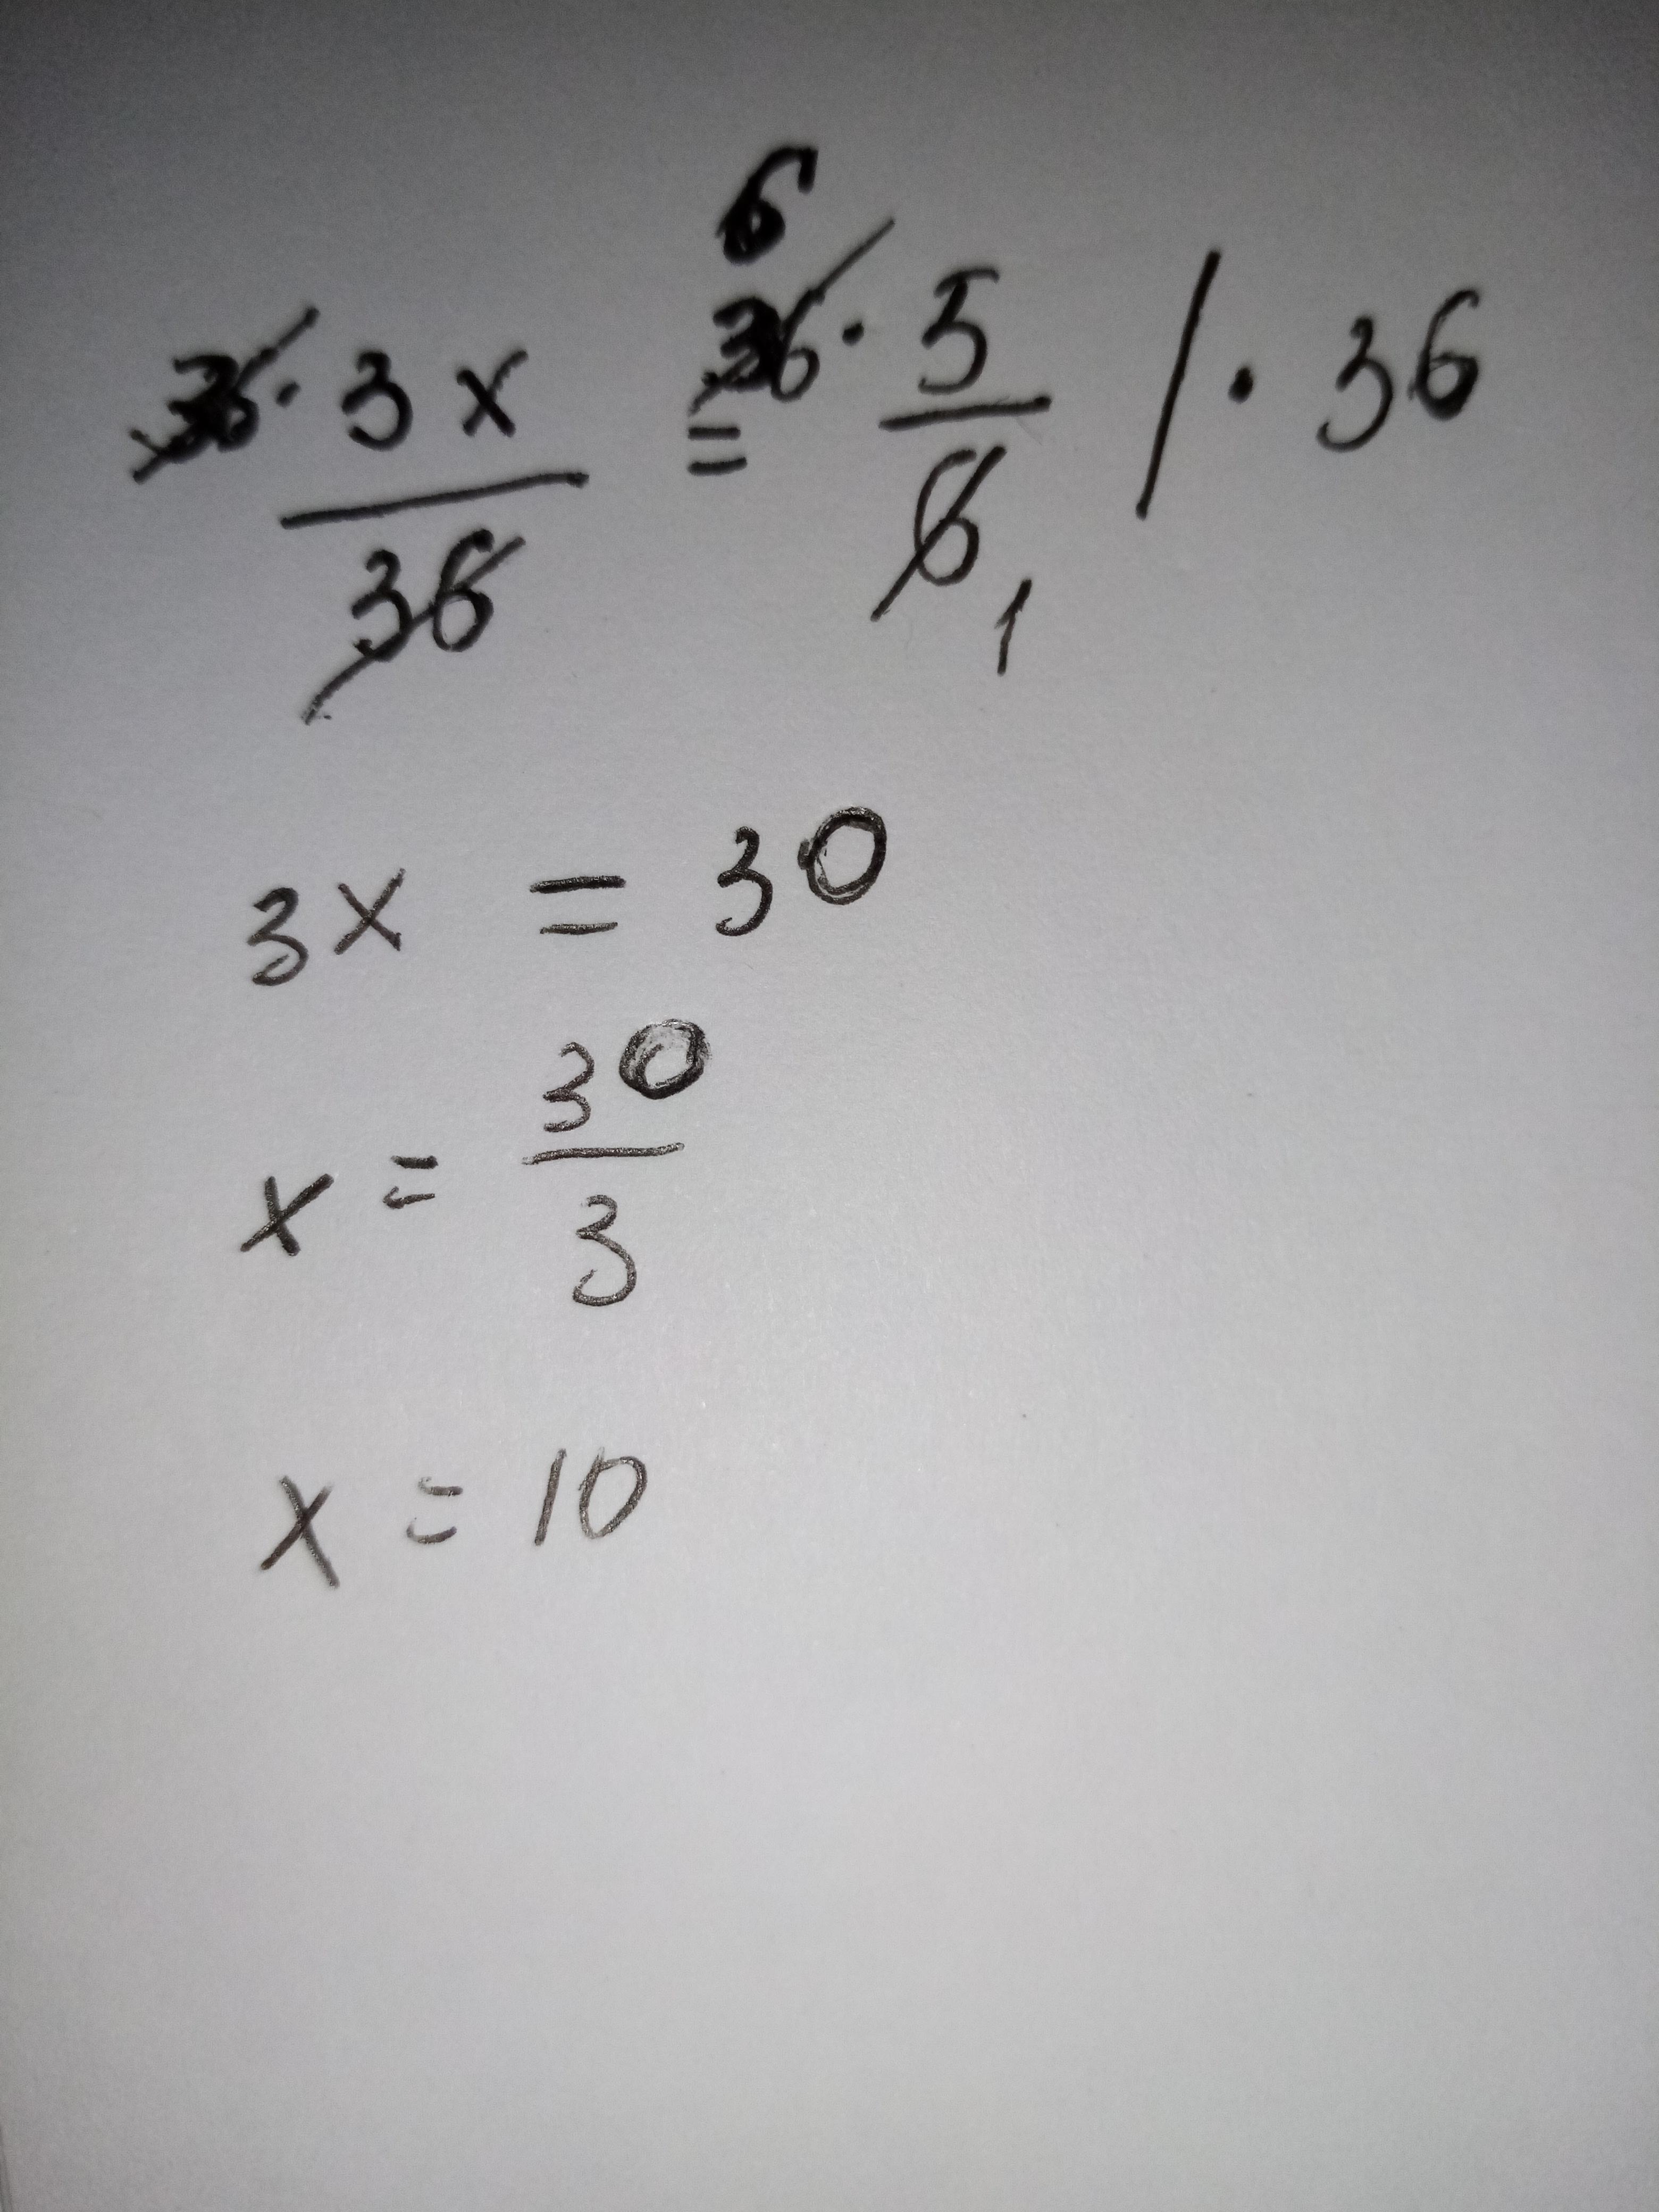 36 · 3x/36 = 36 · 5/6 | · 36
6
1
3x = 30
x = 30/3
x = 10